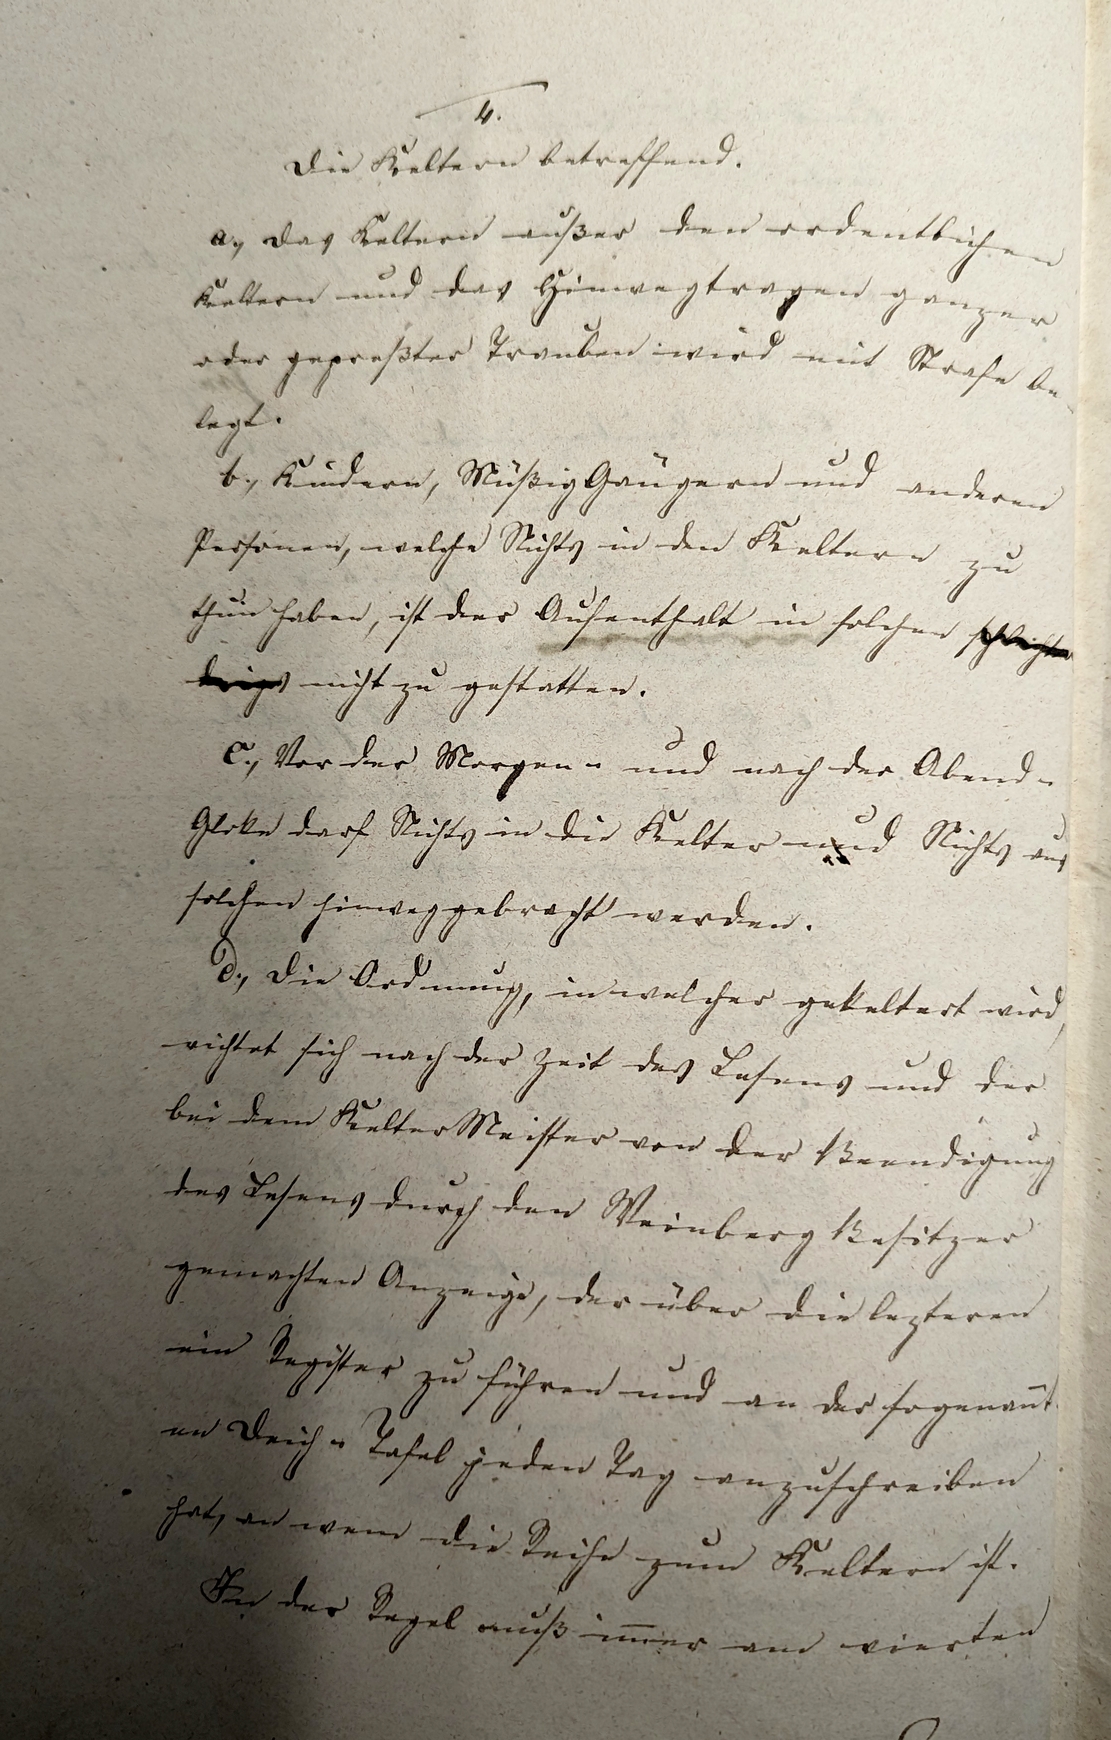 4.
Die Keltern betreffend.
a., Das Keltern außer den ordentlichen
Keltern und das Hinwegtragen ganzer
oder gepreßter Trauben wird mit Strafe be-
legt.
b., Kindern, Müßig Gängern und anderen
Personen, welche Nichts in den Keltern zu
thun haben, ist der Aufenthalt in solchen schlechter
dings nicht zu gestatten.
c., Vor der Morgen- und nach der Abend-
Gloke darf Nichts in die Kelter und Nichts aus
solchen hinweggebracht werden.
d., Die Ordnung, in welcher gekeltert wird,
richtet sich nach der Zeit des Lesens und der
bei dem KelterMeister von der Beendigung
des Lesens durch den Weinberg Besitzer
gemachten Anzeige, der über die lezteren
ein Register zu führen und an der sogenañt
en Deich- Tafel jeden Tag anzuschreiben
hat, an wem die Reihe zum Keltern ist.
In der Regel muß im̅er am vierten